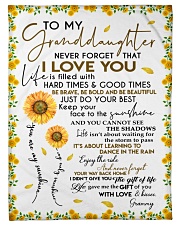 TO MY
Granddaughter
NEVER FORGET THAT
I LOVE YOU
Life is filled with
HARD TIMES & GOOD TIMES
BE BRAVE, BE BOLD AND BE BEAUTIFUL
JUST DO YOUR BEST
Keep your
face to the sunshine
AND YOU CANNOT SEE
THE SHADOWS
Life isn't about waiting for
the storm to pass
IT'S ABOUT LEARNING TO
DANCE IN THE RAIN
Enjoy the ride
And never forget
YOUR WAY BACK HOME
I DIDN'T GIVE YOU the gift of life
Life gave me the GIFT OF you
WITH LOVE & kisses
Grammy
You are my sunshine